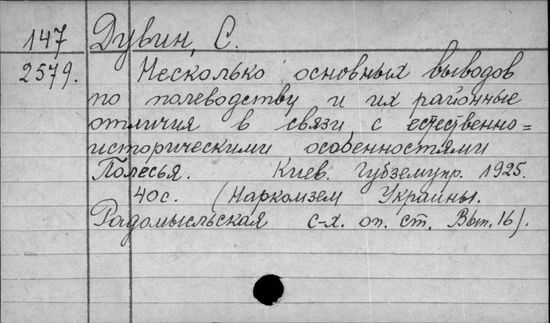 147 Дувин, С.
2579. Несколько основных выводов
по полеводству и их районные
отличия в связи с естественно=
историческими особенностями
Полесья. Киев. Губземупр. 1925.
40с. (Наркомзем Украины.
Радомысльская с-х. оп. ст. Вып. 16).